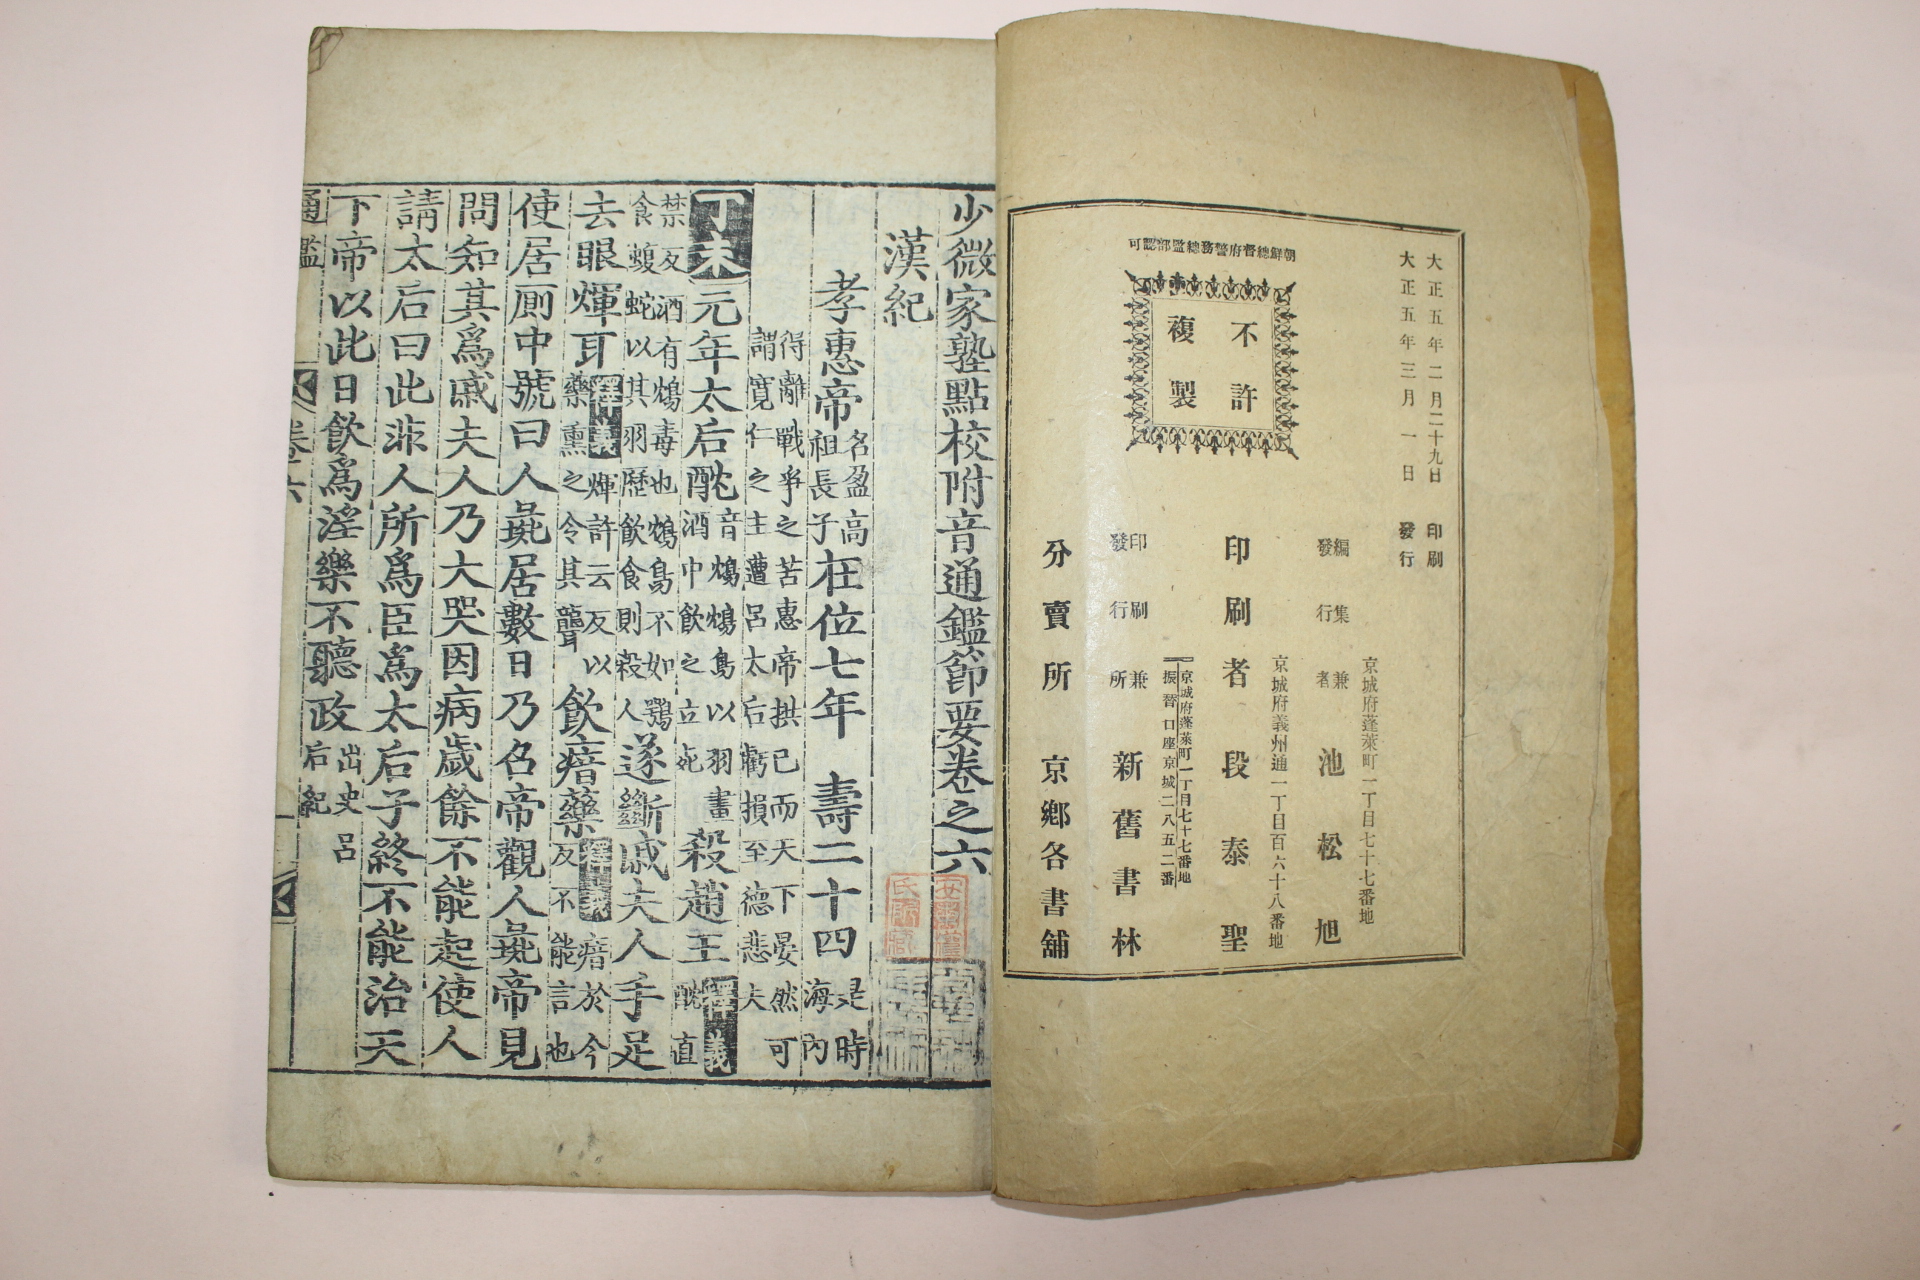 大正五年二月二十九日 印刷
大正五年三月一日 發行
朝鮮總督府警務總監部認可
不許
複製
京城府蓬萊町一丁目七十七番地
編集兼
發行者
池松旭
京城府義州通一丁目百六十八番地
印刷者 段泰聖
京城府蓬萊町一丁目七十七番地
振替口座京城二八五二番
印刷兼
發行所
新舊書林
分賣所 京鄉各書舖
少微家塾點校附音通鑑節要卷之六
漢紀
孝惠帝
名盈高
祖長子
在位七年 壽二十四
是時
海內
得離戰爭之苦惠帝拱已而天下晏然可
謂寬仁之主遭呂太后虧損至德悲夫
丁未元年太后酖
音鴆鴆鳥以羽畫
酒中飲之立死
殺趙王
釋義
酖直
禁反酒有鴆毒也鴆鳥不如鶚
食蝮蛇以其羽歷飲食則殺人
遂斷戚夫人手足
去眼煇耳
釋義煇許云反以
藥熏之令其聾
飲瘖藥
釋義瘖於今
反不能言也
使居厠中號曰人彘居數日乃召帝觀人彘帝見
問知其爲戚夫人乃大哭因病歲餘不能起使人
請太后曰此非人所爲臣爲太后子終不能治天
下帝以此日飲爲淫樂不聽政
出史呂
后紀
通鑑 卷六